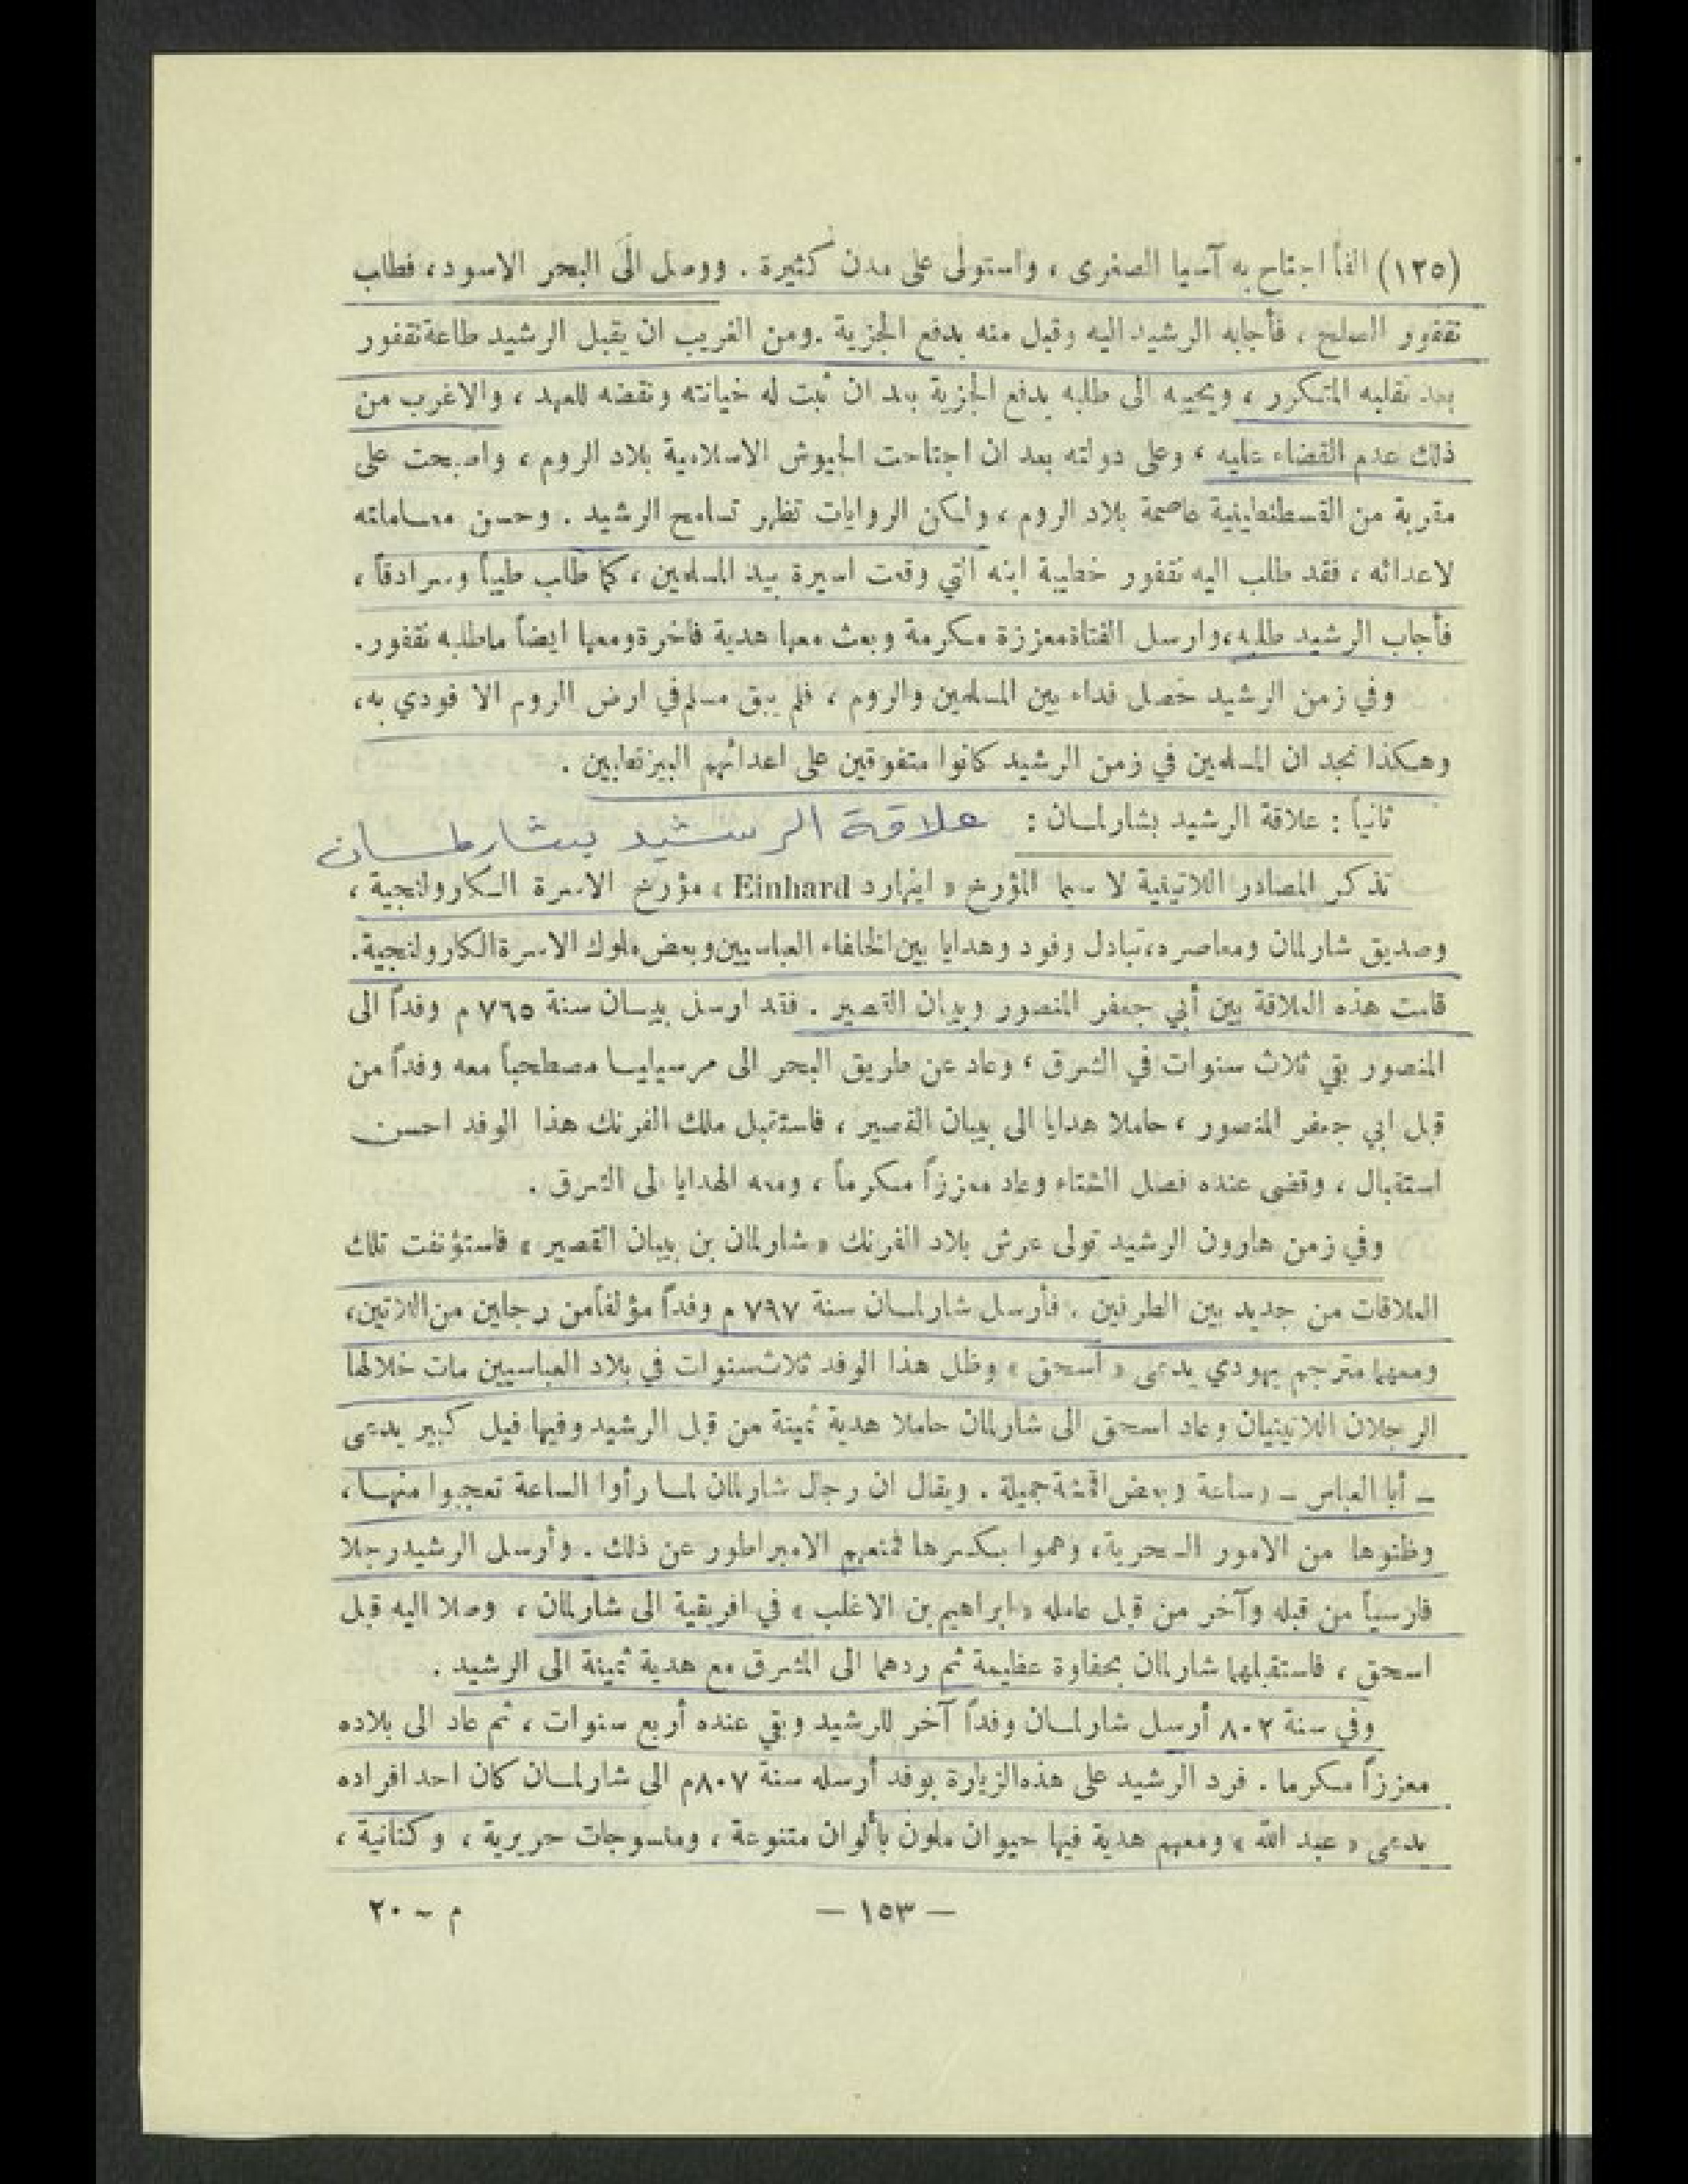 (١٣٥) الفاً اجتاح به آسيا الصغرى ، واستولى على مدن كثيرة . ووصل الى البحر الاسود ، فطلب
نقفور الصلح ، فأجابه الرشيد اليه وقبل منه بدفع الجزية . ومن الغريب ان يقبل الرشيد طاعة نقفور
بعد تقلبه المتكرر ، ويجيبه الى طلبه بدفع الجزية بعد ان ثبت له خيانته ونقضه للعهد ، والاغرب من
ذلك عدم القضاء عليه ، وعلى دولته بعد ان اجتاحت الجيوش الاسلامية بلاد الروم ، واصبحت على
مقربة من القسطنطينية عاصمة بلاد الروم ، ولكن الروايات تظهر تسامح الرشيد . وحسن معاملته
لاعدائه ، فقد طلب اليه نقفور خطيبة ابنه التي وقعت اسيرة بيد المسلمين ، كما طلب طيباً وسرادقاً ،
فأجاب الرشيد طلبه ، وارسل الفتاة معززة مكرمة وبعث معها هدية فاخرة ومعها ايضاً ماطلبه نقفور .
وفي زمن الرشيد حصل فداء بين المسلمين والروم ، فلم يبق مسلم في ارض الروم الا فودي به ،
وهكذا نجد ان المسلمين في زمن الرشيد كانوا متفوقين على اعدائهم البيزنطيين .
ثانياً : علاقة الرشيد بشارلمان : علاقة الرشيد بشارلمان
تذكر المصادر اللاتينية لا سيما المؤرخ « اينهارد Einhard » مؤرخ الاسرة الكارولنجية ،
وصديق شارلمان ومعاصره ، تبادل وفود وهدايا بين الخلفاء العباسيين وبعض ملوك الاسرة الكارولنجية .
قامت هذه العلاقة بين أبي جعفر المنصور وبيان القصير . فقد ارسل بيبان سنة ٧٦٥ م وفداً الى
المنصور بقي ثلاث سنوات في الشرق ، وعاد عن طريق البحر الى مرسيليا مصطحباً معه وفداً من
قبل ابي جعفر المنصور ، حاملا هدايا الى بيبان القصير ، فاستقبل ملك الفرنك هذا الوفد احسن
استقبال ، وقضى عنده فصل الشتاء وعاد معززاً مكرماً ، ومعه الهدايا الى الشرق .
وفي زمن هارون الرشيد تولى عرش بلاد الفرنك « شارلمان بن بيبان القصير » فاستؤنفت تلك
العلاقات من جديد بين الطرفين . فأرسل شارلمان سنة ٧٩٧ م وفداً مؤلفاً من رجلين من اللاتين ،
ومعهما مترجم يهودي يدعى « اسحق » وظل هذا الوفد ثلاث سنوات في بلاد العباسيين مات خلالها
الرجلان اللاتينيان وعاد اسحق الى شارلمان حاملا هدية ثمينة من قبل الرشيد وفيها فيل كبير يدعى
– أبا العباس – وساعة وبعض اقمشة جميلة . ويقال ان رجال شارلمان لما رأوا الساعة تعجبوا منها ،
وظنوها من الامور السحرية ، وهموا بكسرها فمنعهم الامبراطور عن ذلك . وأرسل الرشيد رجلا
فارسياً من قبله وآخر من قبل عامله « ابراهيم بن الاغلب » في افريقية الى شارلمان ، وصلا اليه قبل
اسحق ، فاستقبلهما شارلمان بحفاوة عظيمة ثم ردهما الى الشرق مع هدية ثمينة الى الرشيد .
وفي سنة ٨٠٢ أرسل شارلمان وفداً آخر للرشيد وبقي عنده أربع سنوات ، ثم عاد الى بلاده
معززاً مكرما . فرد الرشيد على هذه الزيارة بوفد أرسله سنة ٨٠٧م الى شارلمان كان احد افراده
يدعى « عبد الله » ومعهم هدية فيها حيوان ملون بألوان متنوعة ، ومنسوجات حريرية ، وكتانية ،
— ١٥٣ — م – ٢٠